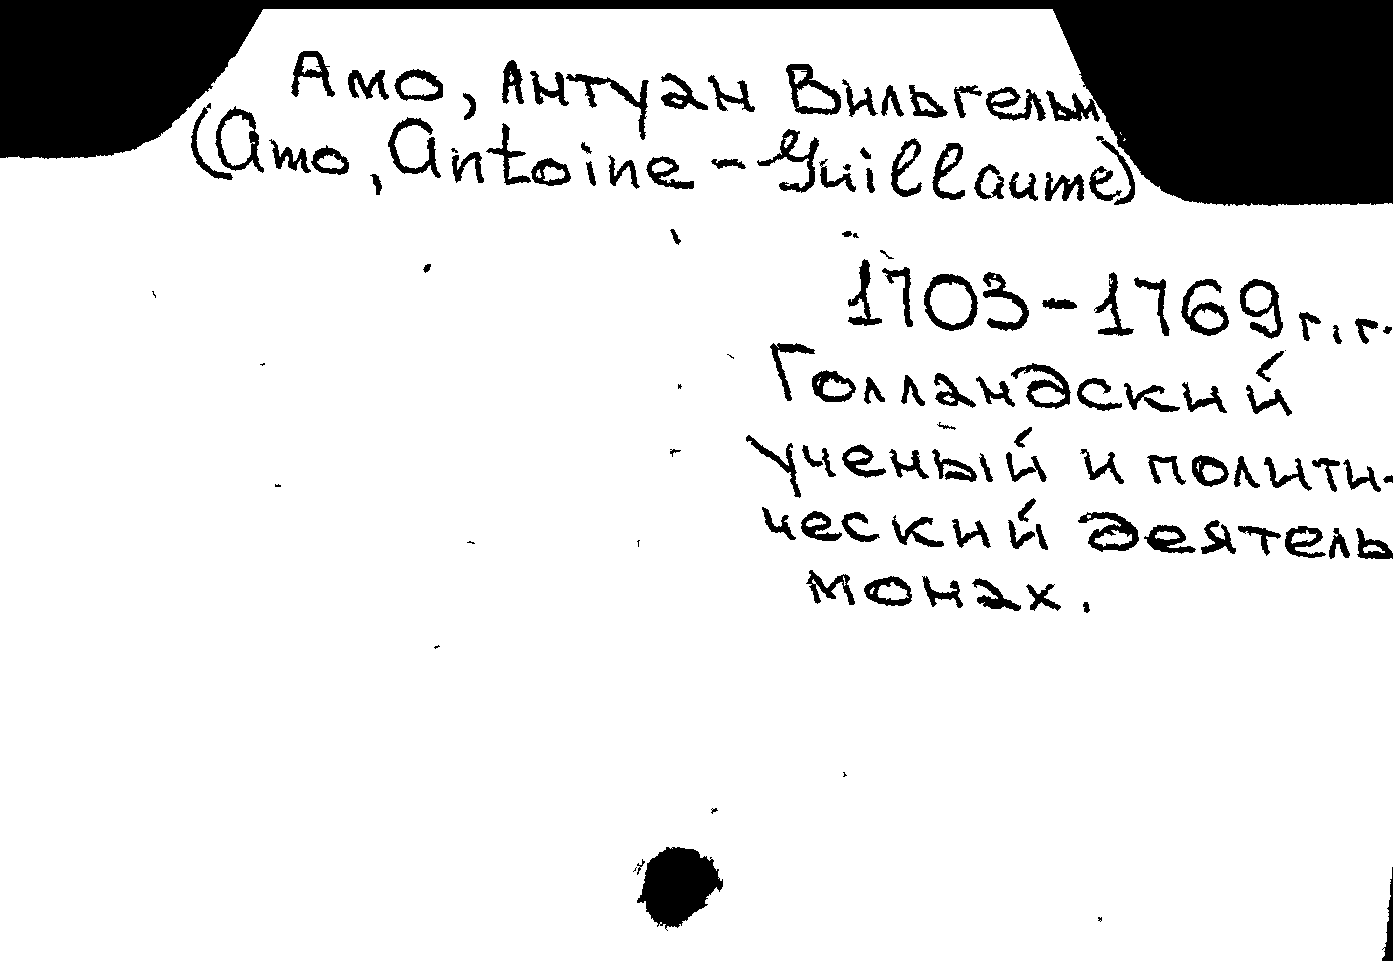 Амо, Антуан Вильгельм
(Amo, Antoine-Guillaume)
1703-1769 г.г.
Голландский
ученый и полити-
ческий деятель
монах.